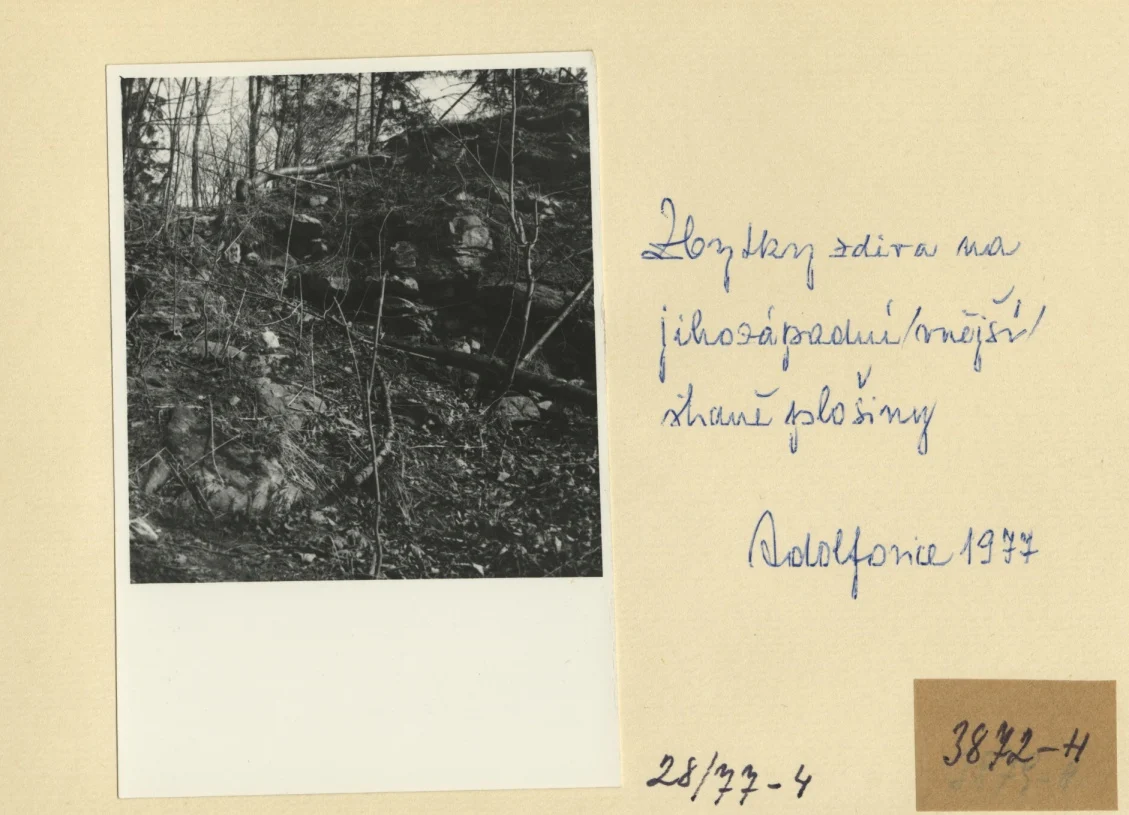 Zbytky zdiva na
jihozápadní /vnější/
straně plošiny
Adolfovice 1977
28/77-4
3872-H